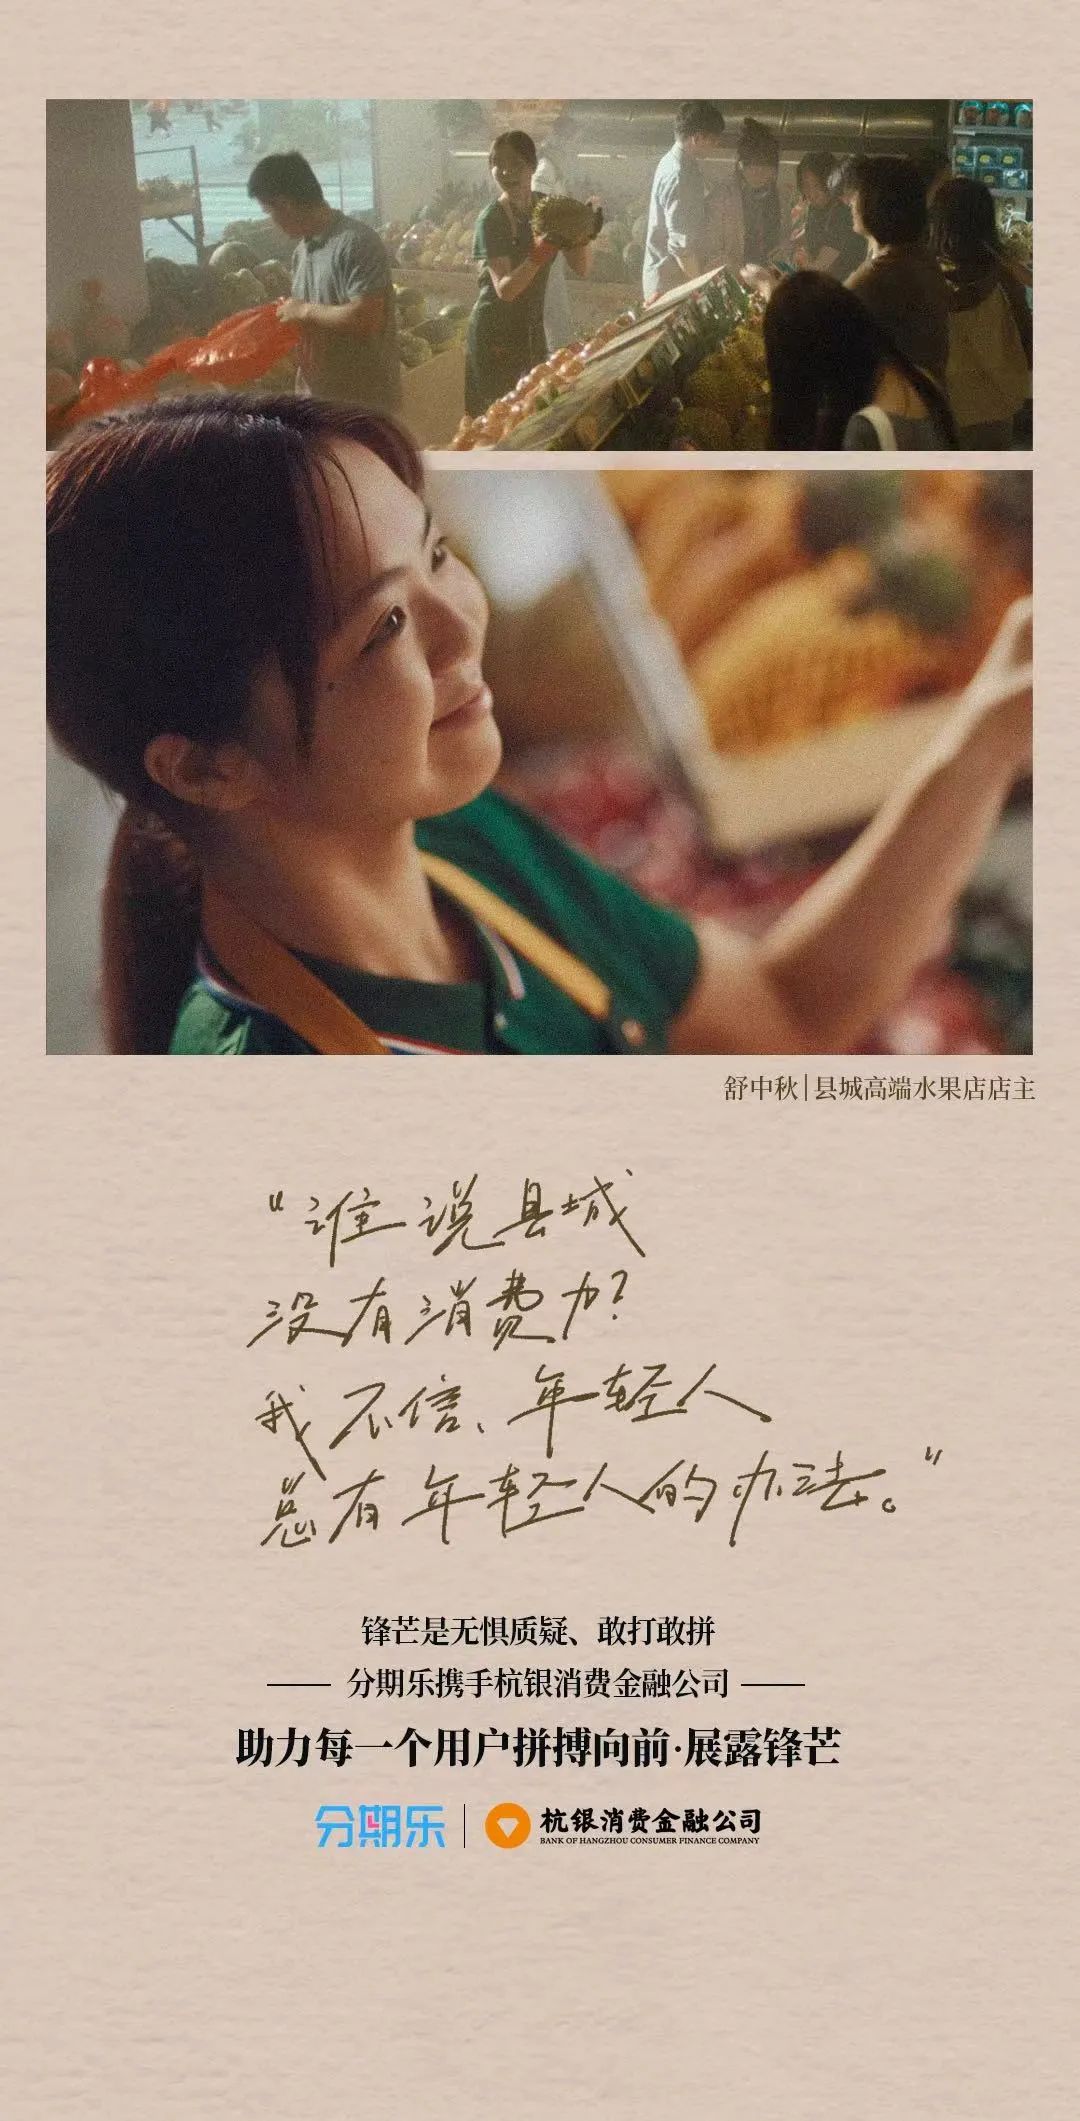 舒中秋|县城高端水果店店主
“谁说县城
没有消费力?
我不信、年轻人
总有年轻人的办法。”
锋芒是无惧质疑、敢打敢拼
分期乐携手杭银消费金融公司
助力每一个用户拼搏向前·展露锋芒
分期乐 | 杭银消费金融公司
BANK OF HANGZHOU CONSUMER FINANCE COMPANY